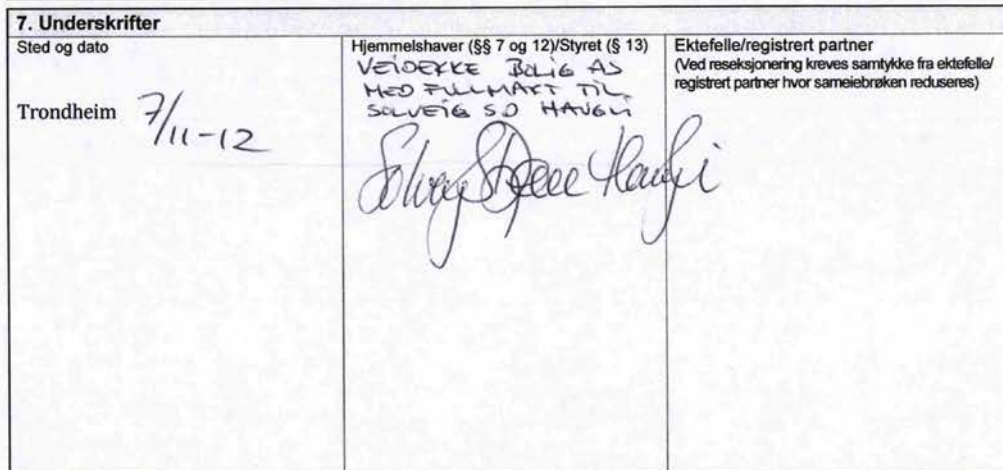 7. Underskrifter
Sted og dato
Trondheim 7/11-12
Hjemmelshaver (§§ 7 og 12)/Styret (§ 13)
VEIDEKKE BOLIG AS
MED FULLMAKT TIL
SOLVEIG SD HAUGLI
Ektefelle/registrert partner
(Ved reseksjonering kreves samtykke fra ektefelle/
registrert partner hvor sameiebrøken reduseres)